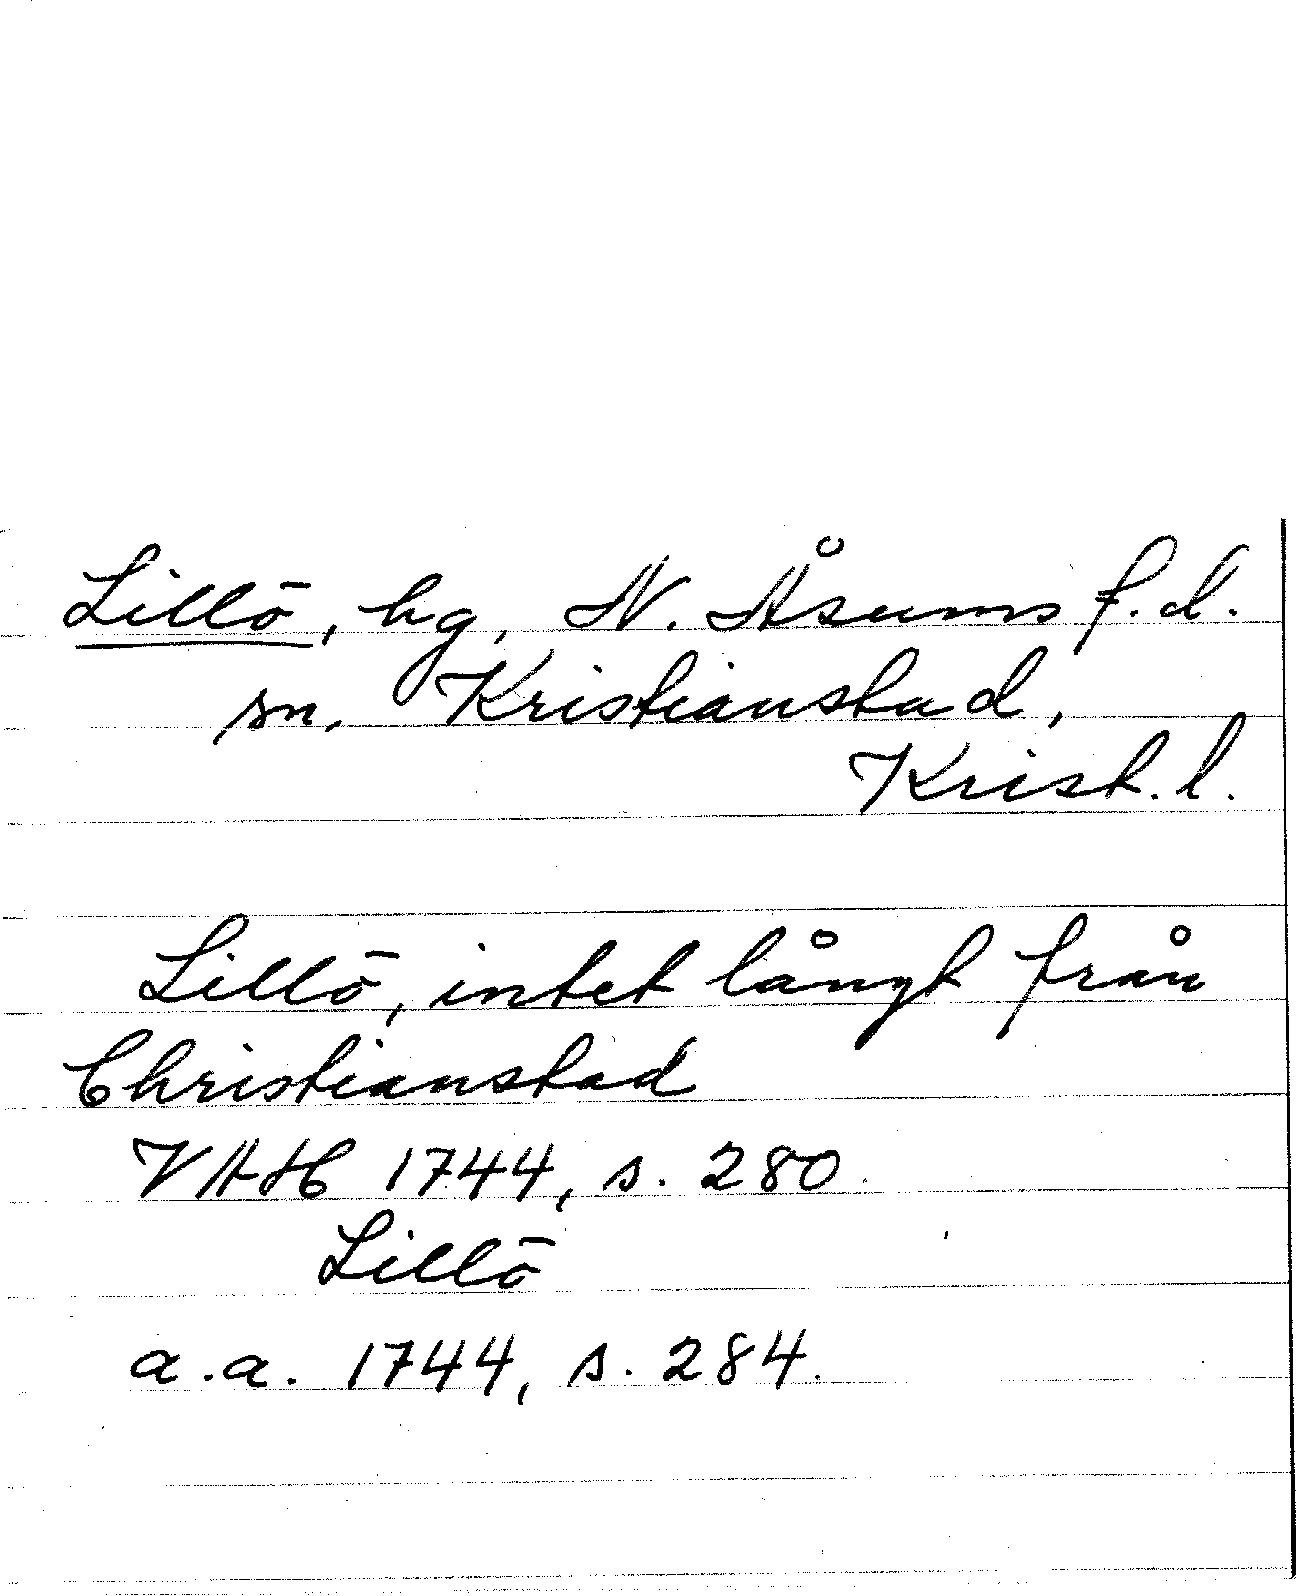 Lillö, hg, N. Åsums f.d.
sn, Kristianstad,
Krist. l.
Lillö, intet långt från
Christianstad
VAH 1744, s. 280.
Lillö
a.a. 1744, s. 284.